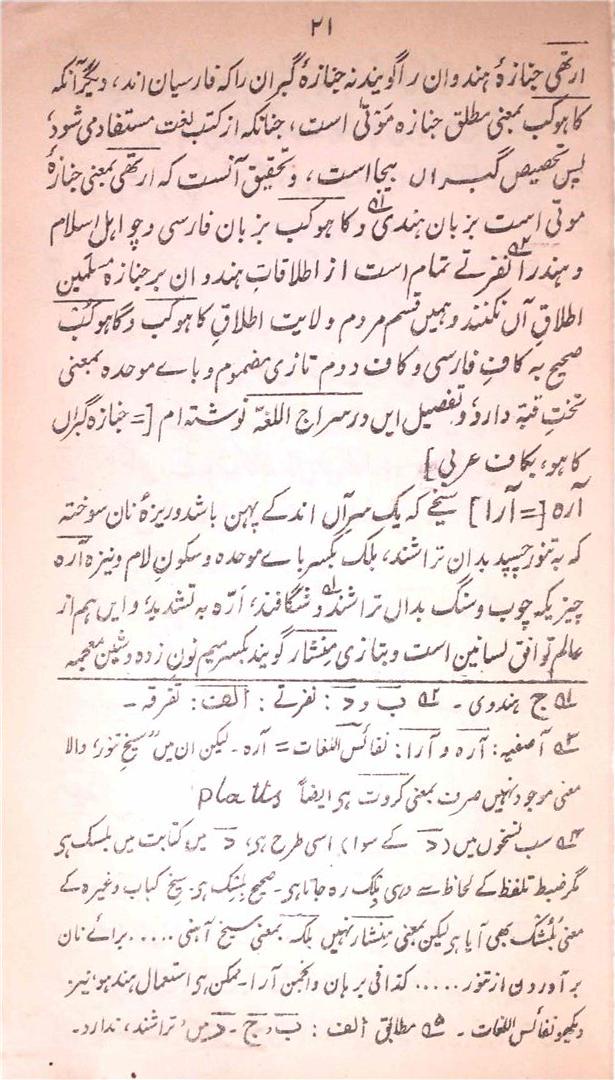 ۲۱
ارتھی جنازۂ ہندوان را گویند نہ جنازۂ گبران را کہ فارسیان اند، دیگر آنکہ
کاہوکب بمعنی مطلق جنازہ مَوتٰی است، چنانکہ از کتب لغت مستفاد می شود،
پس تخصیص گبراں بیجا است، و تحقیق آنست کہ ارتھی بمعنی جنازۂ
موتٰی است بزبان ہندی و کاہوکب بزبان فارسی و چو اہل اسلام
و ہندو را نفرتے تمام است از اطلاقات ہندوان بر جنازہ مسلمین
اطلاقِ آں نکنند و ہمیں قسم مردم ولایت اطلاقِ کاہوکب و گاہوکُب
صحیح بہ کافِ فارسی و کاف دوم تازی مضموم و باے موحدہ بمعنی
تختِ قبّہ دارد و تفصیل ایں در سراج اللغۃ نوشتہ ام [= جنازہ گبراں
کاہو، بکاف عربی]
آرہ [= آرا] سیخے کہ یک سرآں اندکے پہن باشد و ریزۂ نان سوختہ
کہ بہ تنور چسپد بدان تراشند، بلک بکسر باے موحدہ و سکونِ لام و نیزہ آرہ
چیزیکہ چوب و سنگ بداں تراشند و شگافند، ارّہ بہ تشدید، و ایں ہم از
عالم توافق لسانین است و بتازی مِنشار گویند بکسر میم نون زدہ و شین معجمہ
۱؎ ج ہندوی ۔ ۲؎ ب و د : نفرتے : الف : تفرقہ ۔
۳؎ آصفیہ : آرہ و آرا : نفائس اللغات = آرہ ۔ لیکن ان میں "سیخِ تنور" والا
معنی موجود نہیں صرف بمعنی کروت ہی ایضاً platts
۴؎ سب نسخوں میں (د کے سوا) اسی طرح ہی، د میں کتابت میں بلسک ہی
مگر ضبط تلفظ کے لحاظ سے وہی بِلک رہ جاتا ہی۔ صحیح بِلسَک ہی۔ سیخ کباب وغیرہ کے
معنی بُلشک بھی آیا ہی لیکن بمعنی مِنشار نہیں بلکہ بمعنی سیخ آہنی ..... برائے نان
بر آوردن از تنور ..... کذا فی برہان و انجمن آرا۔ ممکن ہی استعمال ہند ہو نیز
دیکھو نفائس اللغات ۔ ۵؎ مطابق الف : ب و ج ۔ د میں "تراشند" ندارد۔